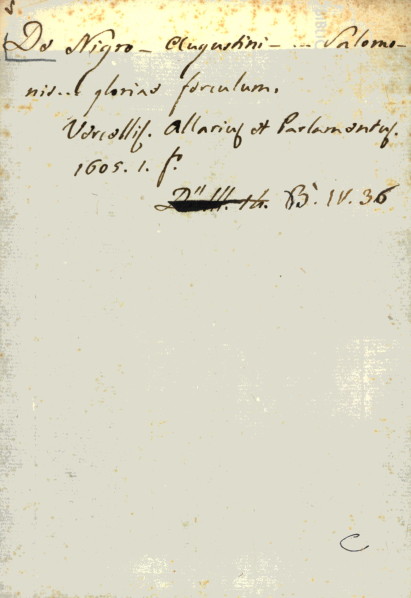 De Nigro - Augustini - ... Salomo-
nis... gloriae ferculum.
Vercellis. Allarius et Parlamentus.
1605. 1. f.
B. IV. 36
C